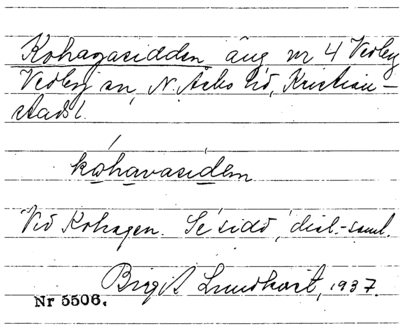 Kohagasidden äng nr 4 Vedby
Vedby sn, N. Åsbo hd, Kristian-
stads l.
kohavasidēn
Vid Kohagen. Se sidd, dial.-saml.
Birgit Lundkvist, 1937.
Nr 5506.